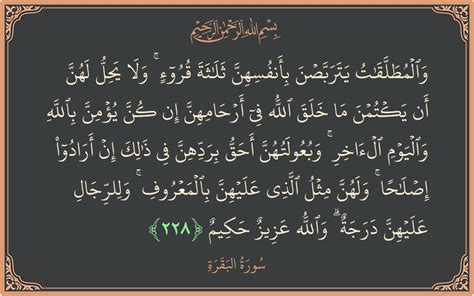 بِسْمِ اللَّهِ الرَّحْمَٰنِ الرَّحِيمِ
وَالْمُطَلَّقَاتُ يَتَرَبَّصْنَ بِأَنفُسِهِنَّ ثَلَاثَةَ قُرُوءٍ ۚ وَلَا يَحِلُّ لَهُنَّ
أَن يَكْتُمْنَ مَا خَلَقَ اللَّهُ فِي أَرْحَامِهِنَّ إِن كُنَّ يُؤْمِنَّ بِاللَّهِ
وَالْيَوْمِ الْآخِرِ ۚ وَبُعُولَتُهُنَّ أَحَقُّ بِرَدِّهِنَّ فِي ذَٰلِكَ إِنْ أَرَادُوا
إِصْلَاحًا ۚ وَلَهُنَّ مِثْلُ الَّذِي عَلَيْهِنَّ بِالْمَعْرُوفِ ۚ وَلِلرِّجَالِ
عَلَيْهِنَّ دَرَجَةٌ ۗ وَاللَّهُ عَزِيزٌ حَكِيمٌ ﴿٢٢٨﴾
سُورَةُ البَقَرَةِ